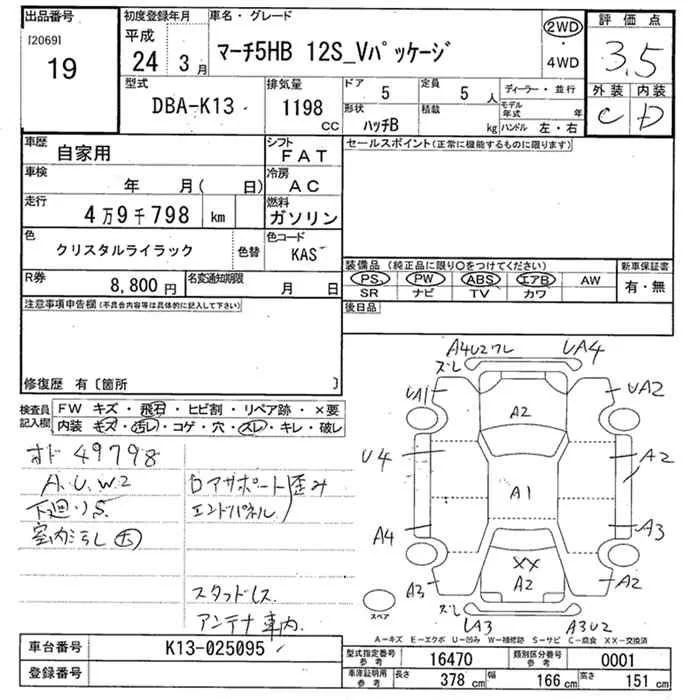 出品番号
[2069]
19
初度登録年月
平成
24 3月
車名・グレード
マーチ5HB 12S_Vパッケージ
2WD
・
4WD
評価点
3.5
外装 内装
C D
型式
DBA-K13
排気量
1198
cc
ドア
5
定員
5 人
形状
ハッチB
積載
kg
ディーラー・並行
モデル年式 年
ハンドル 左・右
車歴
自家用
シフト
FAT
車検
年 月( 日)
冷房
AC
走行
4万9千798 km
燃料
ガソリン
色
クリスタルライラック
色替
色コード
KAS
R券
8,800円
名変通知期限
月 日
セールスポイント(正常に機能するものに限ります)
装備品 (純正品に限り○をつけてください)
PS PW ABS エアB AW
SR ナビ TV カワ
新車保証書
有・無
後日品
注意事項申告欄(不具合内容等は具体的に記入して下さい)
修復歴 有〔箇所 〕
検査員記入欄
FW キズ・飛石・ヒビ割・リペア跡・×要
内装 キズ・汚レ・コゲ・穴・スレ・キレ・破レ
オド 49798
A.U.W2
下廻りS
室内汚れ 大
ロアサポート歪み
エンドパネル
スタッドレス
アンテナ車内
A4U2ワレ
ズレ
UA4
UA1
UA2
A2
U4
A2
A1
A4
A3
XX
A2
A3
A2
ズレ
UA3
A3U2
スペア
A-キズ E-エクボ U-凹み W-補修跡 S-サビ C-腐食 XX-交換済
車台番号
K13-025095
登録番号
型式指定番号
参考
16470
類別区分番号
参考
0001
車庫証明用
参考
長さ
378 cm
幅
166 cm
高さ
151 cm